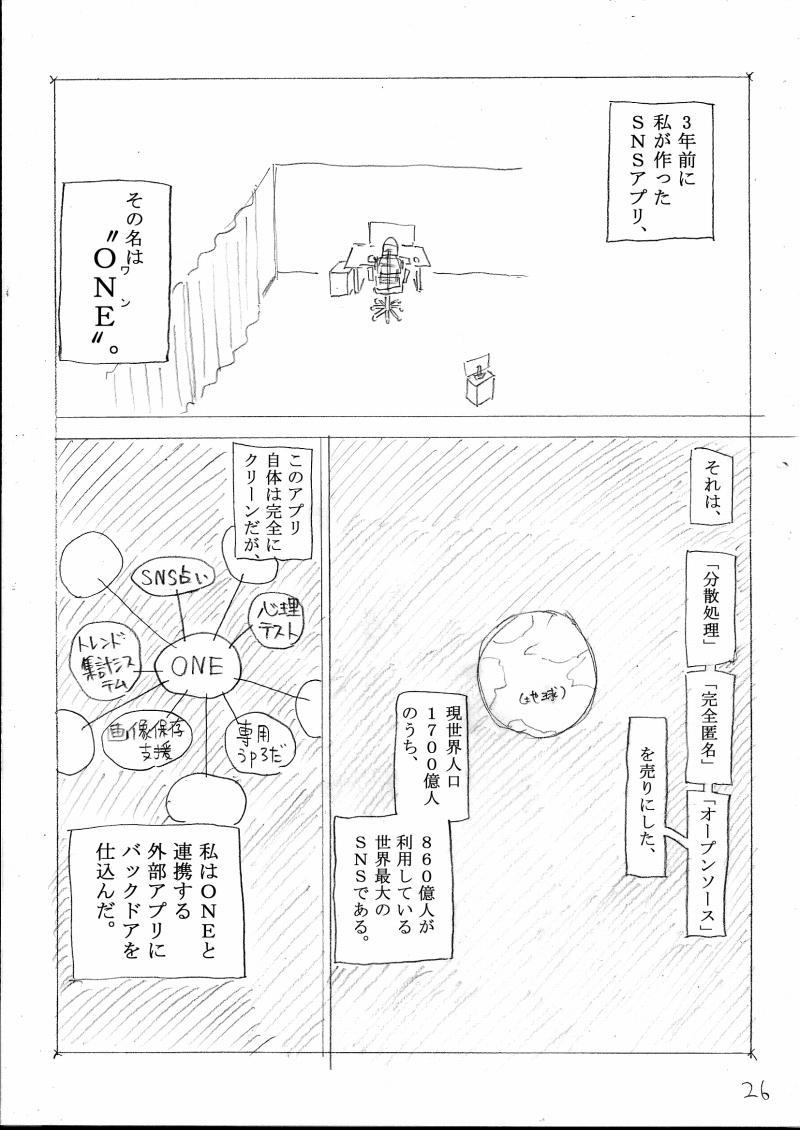 3年前に
私が作った
SNSアプリ、
その名は
ワン
〝ONE〟。
それは、
「分散処理」
「完全匿名」
「オープンソース」
を売りにした、
(地球)
現世界人口
1700億人
のうち、
860億人が
利用している
世界最大の
SNSである。
このアプリ
自体は完全に
クリーンだが、
SNS占い
心理
テスト
トレンド
集計シス
テム
ONE
画像保存
支援
専用
うpろだ
私はONEと
連携する
外部アプリに
バックドアを
仕込んだ。
26